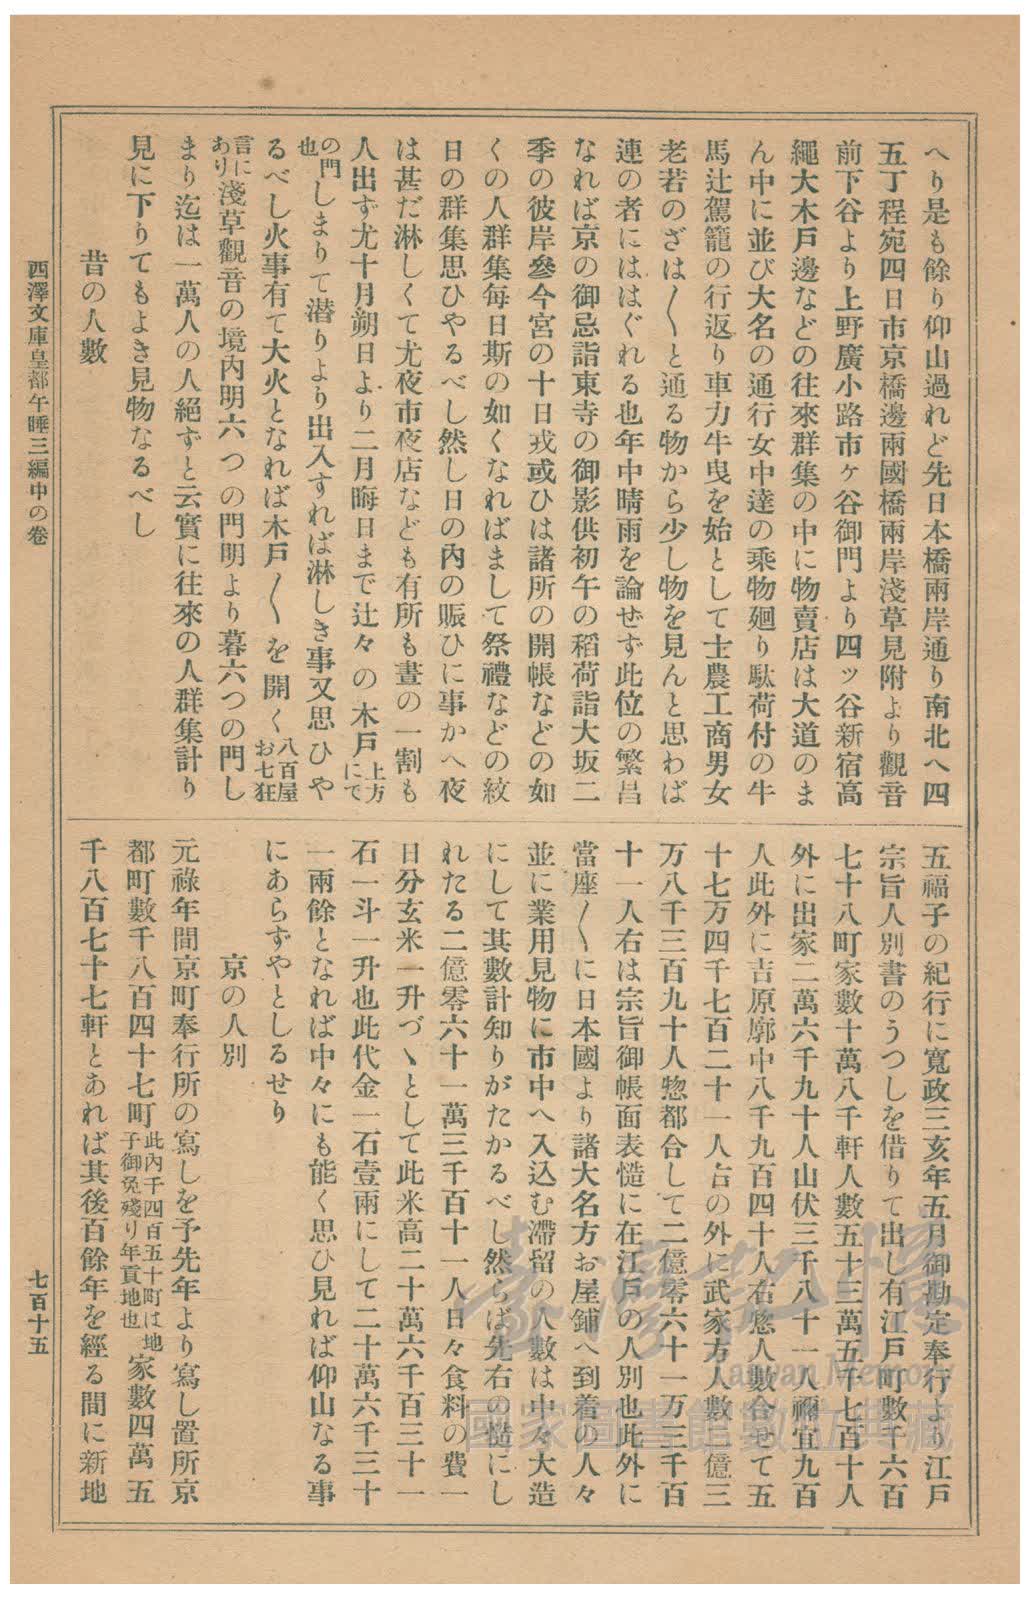 へり是も餘り仰山過れど先日本橋兩岸通り南北へ四
五丁程宛四日市京橋邊兩國橋兩岸淺草見附より觀音
前下谷より上野廣小路市ヶ谷御門より四ッ谷新宿高
繩大木戸邊などの往來群集の中に物賣店は大道のま
ん中に並び大名の通行女中達の乘物廻り駄荷付の牛
馬辻駕籠の行返り車力牛曳を始として士農工商男女
老若のざは〱と通る物から少し物を見んと思わば
連の者にははぐれる也年中晴雨を論せず此位の繁昌
なれば京の御忌詣東寺の御影供初午の稻荷詣大坂二
季の彼岸參今宮の十日戎或ひは諸所の開帳などの如
くの人群集毎日斯の如くなればまして祭禮などの紋
日の群集思ひやるべし然し日の內の賑ひに事かへ夜
は甚だ淋しくて尤夜市夜店なども有所も晝の一割も
人出ず尤十月朔日より二月晦日まで辻々の木戸上方にて
の門也しまりて潛りより出入すれば淋しき事又思ひや
るべし火事有て大火となれば木戸〱を開く八百屋お七狂
言にあり淺草觀音の境內明六つの門明より暮六つの門し
まり迄は一萬人の人絕ずと云實に往來の人群集計り
見に下りてもよき見物なるべし
昔の人數
五福子の紀行に寬政三亥年五月御勘定奉行より江戸
宗旨人別書のうつしを借りて出し有江戸町數千六百
七十八町家數十萬八千軒人數五十三萬五千七百十人
外に出家二萬六千九十人山伏三千八十一人禰宜九百
人此外に吉原廓中八千九百四十人右惣人數合せて五
十七万四千七百二十一人右の外に武家方人數二億三
万八千三百九十人惣都合して二億零六十一万三千百
十一人右は宗旨御帳面表慥に在江戸の人別也此外に
當座〱に日本國より諸大名方お屋鋪へ到着の人々
並に業用見物に市中へ入込む滯留の人數は中々大造
にして其數計知りがたかるべし然らば先右の慥にし
れたる二億零六十一萬三千百十一人日々食料の費一
日分玄米一升づゝとして此米高二十萬六千百三十一
石一斗一升也此代金一石壹兩にして二十萬六千三十
一兩餘となれば中々にも能く思ひ見れば仰山なる事
にあらずやとしるせり
京の人別
元祿年間京町奉行所の寫しを予先年より寫し置所京
都町數千八百四十七町此內千四百五十町は地子御免殘り年貢地也家數四萬五
千八百七十七軒とあれば其後百餘年を經る間に新地
西澤文庫皇都午睡三編中の卷
七百十五
臺灣記憶
Taiwan Memory
國家圖書館數位典藏